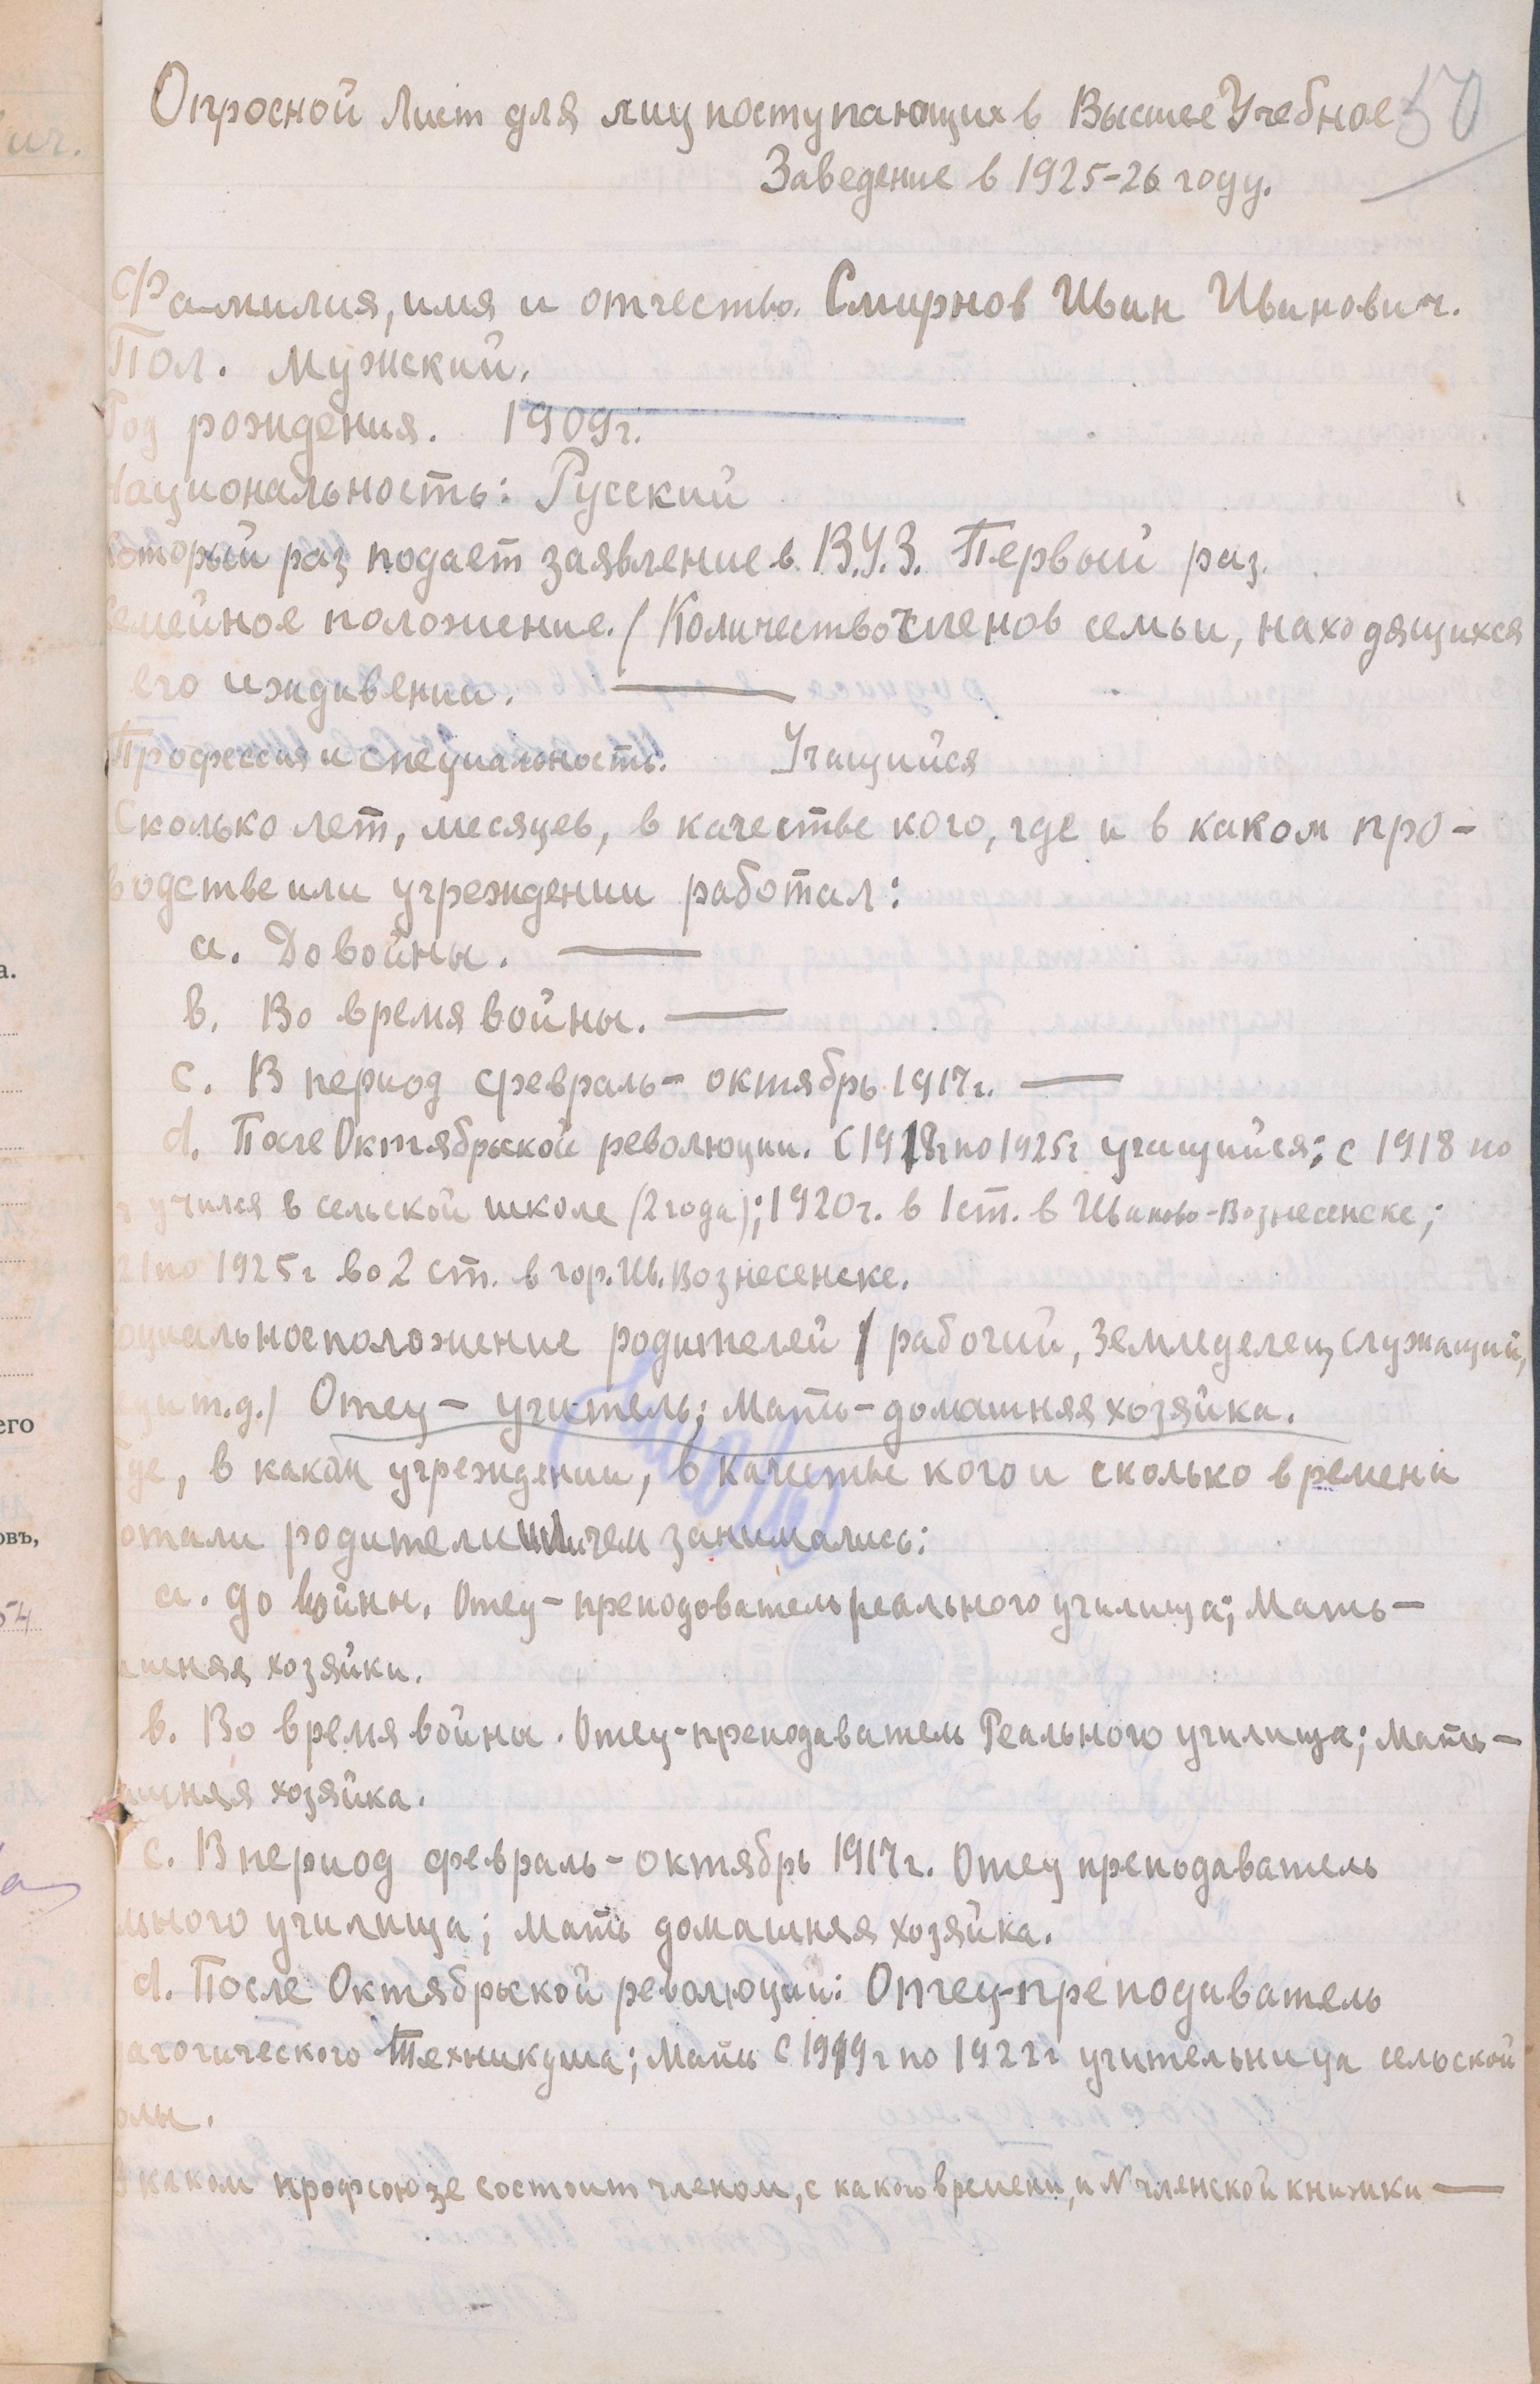 50
Опросной Лист для лиц поступающих в Высшее Учебное
Заведение в 1925-26 году.
Фамилия, имя и отчество. Смирнов Иван Иванович.
Пол. Мужский.
Год рождения. 1909 г.
Национальность: Русский
Который раз подает заявление в В.У.З. Первый раз.
Семейное положение. (Количество членов семьи, находящихся
его иждивении. —
Профессия и специальность. Учащийся
Сколько лет, месяцев, в качестве кого, где и в каком про-
водстве или учреждении работал:
а. До войны. —
в. Во время войны. —
с. В период февраль-октябрь 1917 г. —
d. После Октябрьской революции. С 1918 г по 1925 г учащийся; с 1918 по
г учился в сельской школе (2 года); 1920 г. в 1 ст. в Иваново-Вознесенске;
21 по 1925 г во 2 ст. в гор. Ив. Вознесенске.
оциальное положение родителей / рабочий, земледелец, служащий,
и т.д./ Отец - учитель; Мать - домашняя хозяйка.
Где, в каком учреждении, в качестве кого и сколько времени
отали родители или чем занимались:
а. до войны. Отец - преподователь реального училища; Мать -
шняя хозяйка.
в. Во время войны. Отец - преподаватель Реального училища; Мать -
шняя хозяйка.
с. В период февраль - октябрь 1917 г. Отец преподаватель
льного училища; Мать домашняя хозяйка.
d. После Октябрьской революции: Отец - преподаватель
агогического Техникума; Мать с 1919 г по 1922 г учительница сельской
олы.
В каком профсоюзе состоит членом, с какого времени, и № членской книжки —
а.
его
овъ,
54